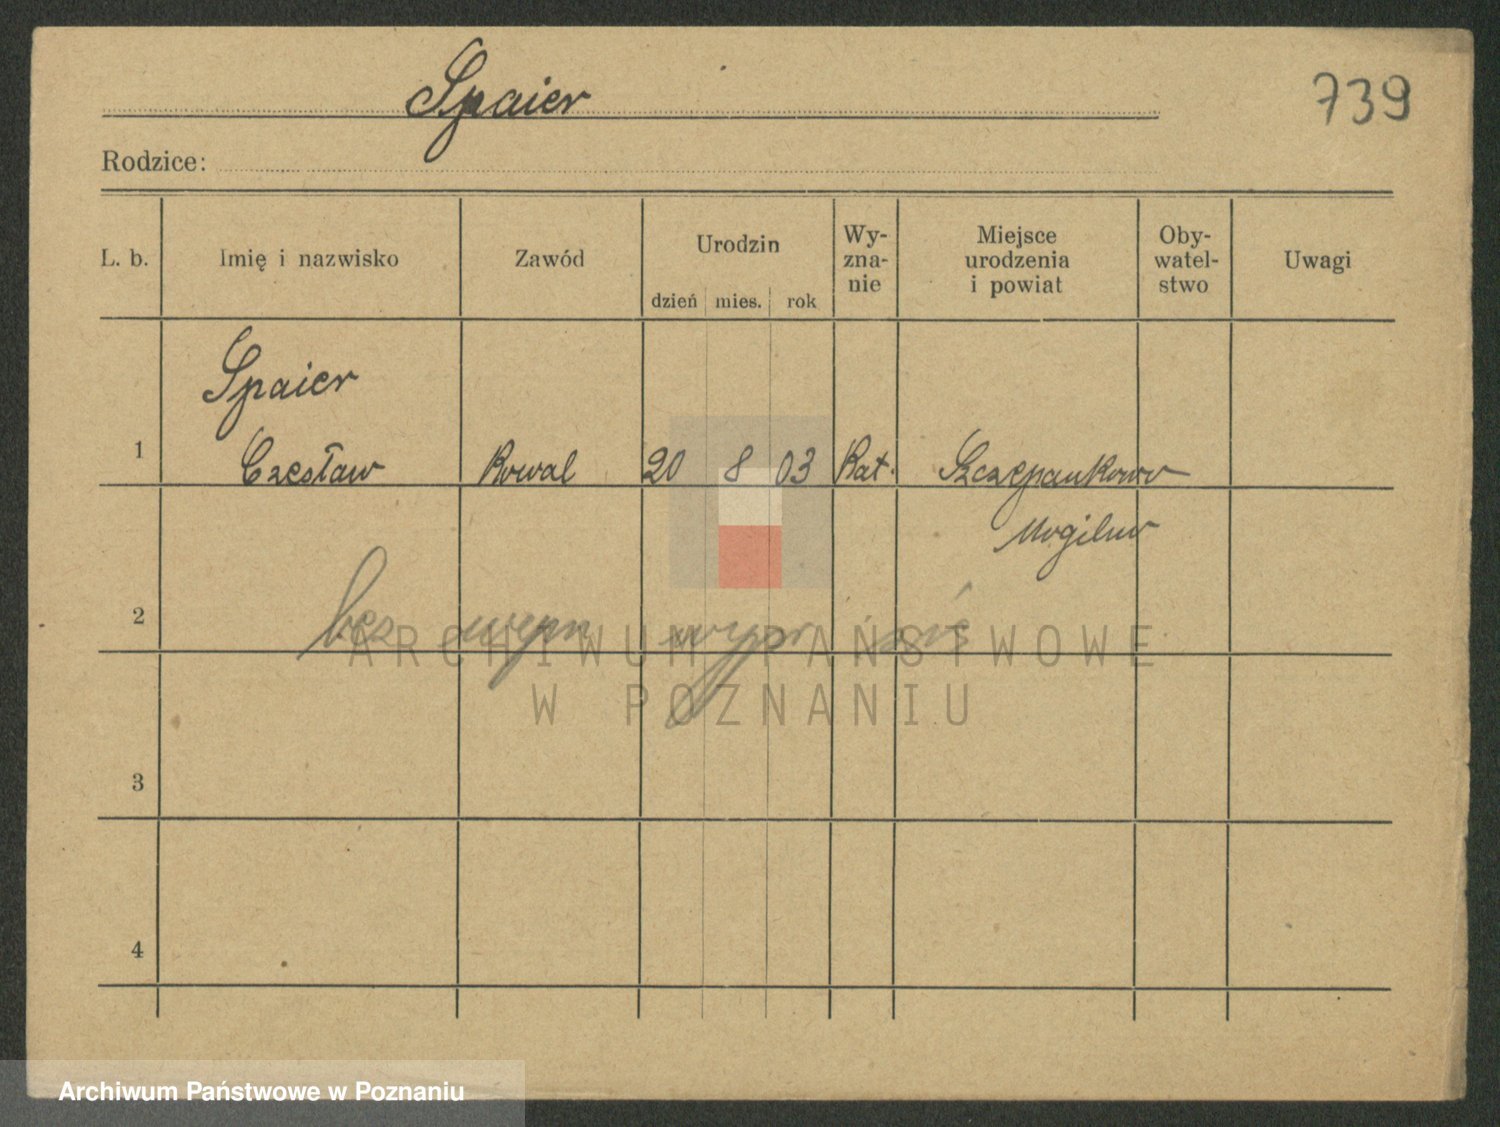 Spaier
739
Rodzice:
L. b. Imię i nazwisko Zawód Urodzin dzień mies. rok Wy-zna-nie Miejsce urodzenia i powiat Oby-watel-stwo Uwagi
Spaier
1 Czesław Kowal 20 8 03 Kat. Szczepankowo
Mogilno
2 bez
3
4
ARCHIWUM PAŃSTWOWE
W POZNANIU
Archiwum Państwowe w Poznaniu